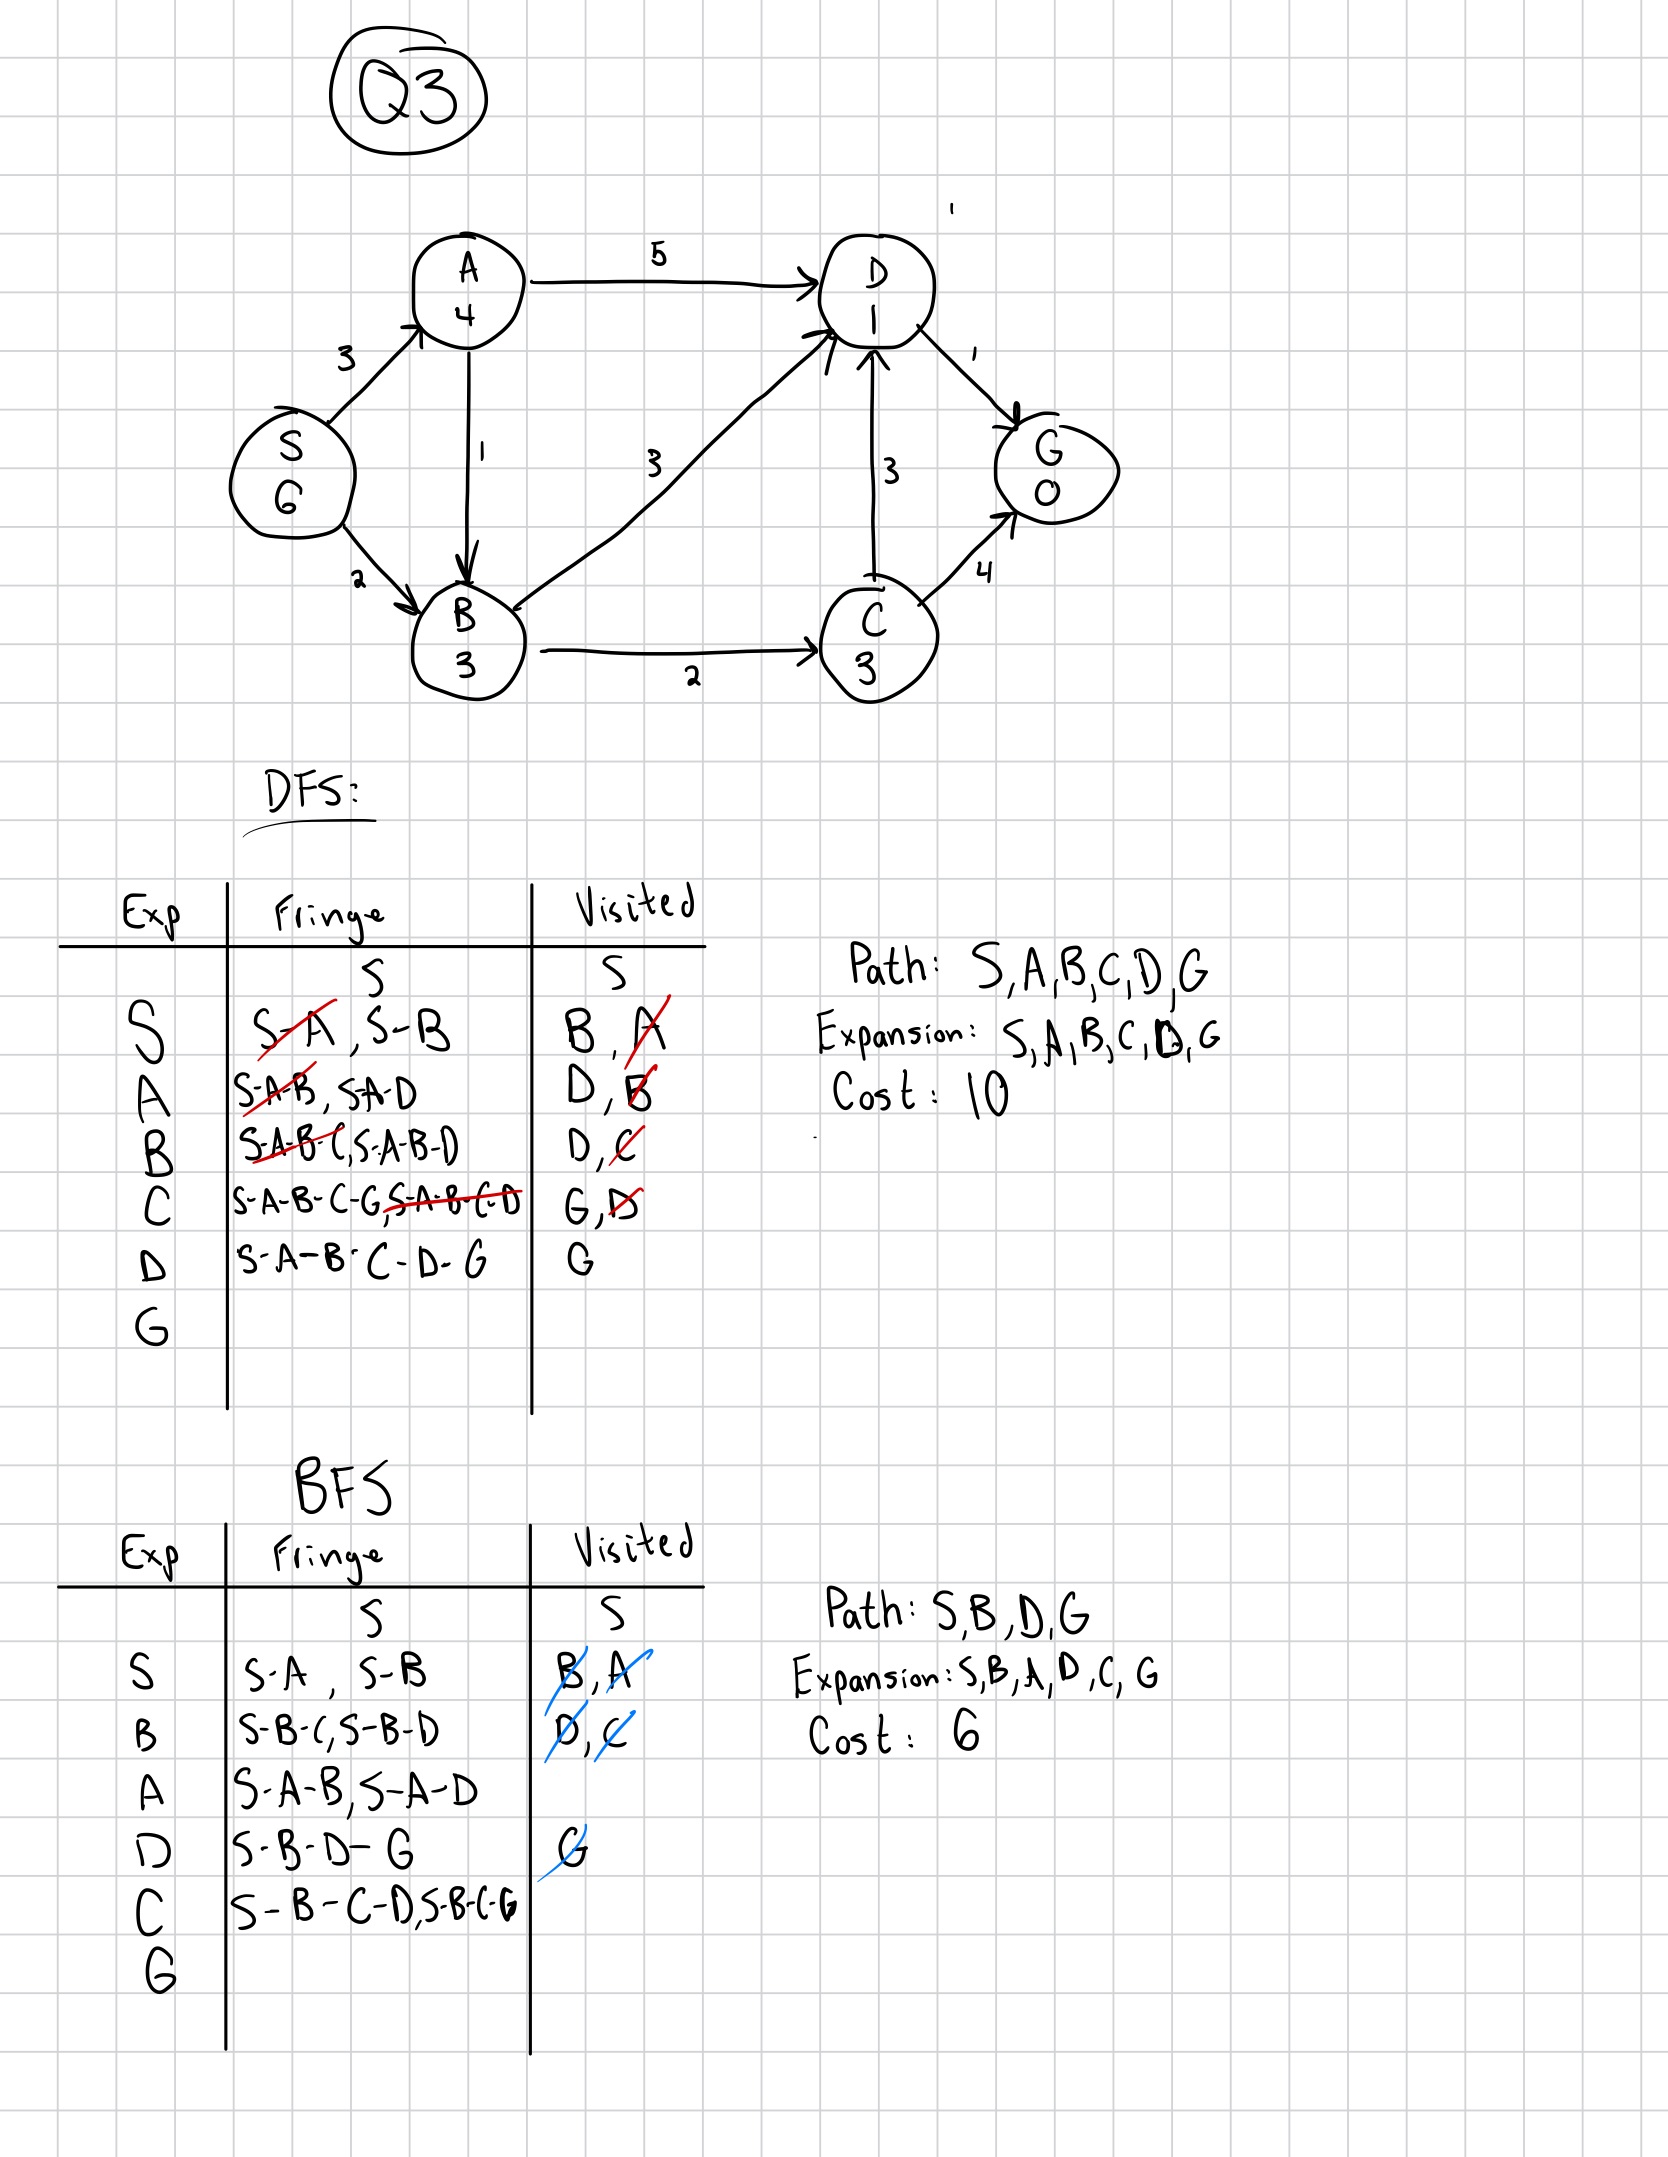 Q3
5
A
4
D
1
3
1
S
6
1
3
3
G
0
2
4
B
3
C
3
2
DFS:
Exp Fringe Visited
S S
S S-A, S-B B, A
A S-A-B, S-A-D D, B
B S-A-B-C, S-A-B-D D, C
C S-A-B-C-G, S-A-B-C-D G, D
D S-A-B-C-D-G G
G
Path: S, A, B, C, D, G
Expansion: S, A, B, C, D, G
Cost: 10
BFS
Exp Fringe Visited
S S
S S-A, S-B B, A
B S-B-C, S-B-D D, C
A S-A-B, S-A-D
D S-B-D-G G
C S-B-C-D, S-B-C-G
G
Path: S, B, D, G
Expansion: S, B, A, D, C, G
Cost: 6